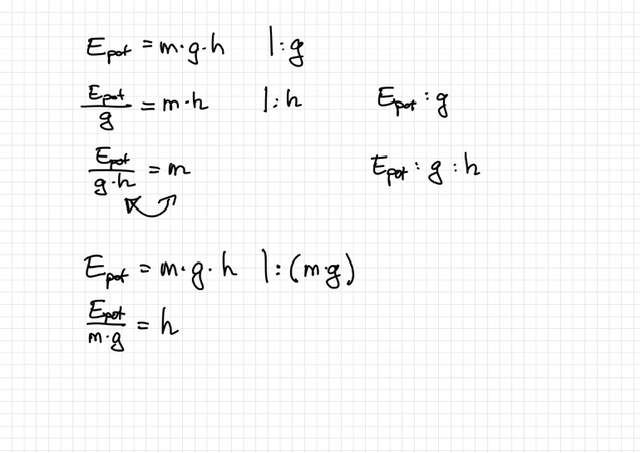 E_pot = m·g·h |:g
E_pot/g = m·h |:h E_pot : g
E_pot/(g·h) = m E_pot : g : h
E_pot = m·g·h |:(m·g)
E_pot/(m·g) = h